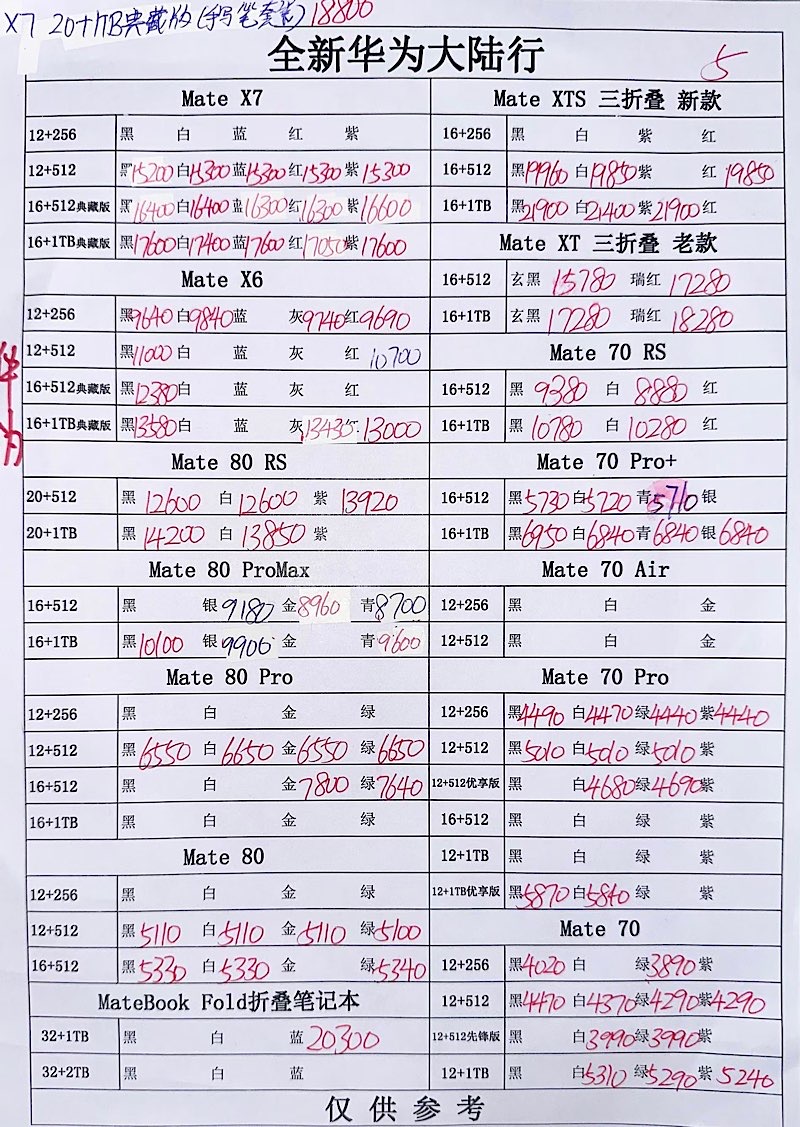 X7 20+1TB典藏版(手写笔套装) 18800
全新华为大陆行
5
华为
Mate X7
12+256 黑 白 蓝 红 紫
12+512 黑15200 白15300 蓝15300 红15300 紫15300
16+512典藏版 黑16400 白16400 蓝16300 红16300 紫16600
16+1TB典藏版 黑17600 白17400 蓝17600 红17050 紫17600
Mate X6
12+256 黑9640 白9840 蓝 灰9740 红9690
12+512 黑11000 白 蓝 灰 红 10700
16+512典藏版 黑12380 白 蓝 灰 红
16+1TB典藏版 黑13580 白 蓝 灰13430 红13000
Mate 80 RS
20+512 黑 12600 白 12600 紫 13920
20+1TB 黑 14200 白 13850 紫
Mate 80 ProMax
16+512 黑 银9180 金8960 青8700
16+1TB 黑10100 银9900 金 青9600
Mate 80 Pro
12+256 黑 白 金 绿
12+512 黑6550 白6650 金6550 绿6650
16+512 黑 白 金7800 绿7640
16+1TB 黑 白 金 绿
Mate 80
12+256 黑 白 金 绿
12+512 黑5110 白5110 金5110 绿5100
16+512 黑5330 白5330 金 绿5340
MateBook Fold折叠笔记本
32+1TB 黑 白 蓝20300
32+2TB 黑 白 蓝
Mate XTS 三折叠 新款
16+256 黑 白 紫 红
16+512 黑19960 白19850 紫 红 19850
16+1TB 黑21900 白21400 紫21900 红
Mate XT 三折叠 老款
16+512 玄黑 15780 瑞红 17280
16+1TB 玄黑 17280 瑞红 18280
Mate 70 RS
16+512 黑 9380 白 8880 红
16+1TB 黑 10780 白 10280 红
Mate 70 Pro+
16+512 黑5730 白5720 青5710 银
16+1TB 黑6950 白6840 青6840 银6840
Mate 70 Air
12+256 黑 白 金
12+512 黑 白 金
Mate 70 Pro
12+256 黑4490 白4470 绿4440 紫4440
12+512 黑5010 白5010 绿5010 紫
12+512优享版 黑 白4680 绿4690 紫
16+512 黑 白 绿 紫
12+1TB 黑 白 绿 紫
12+1TB优享版 黑5870 白5840 绿 紫
Mate 70
12+256 黑4020 白 绿3890 紫
12+512 黑4470 白4370 绿4290 紫4290
12+512先锋版 黑 白3990 绿3990 紫
12+1TB 黑 白5310 绿5290 紫 5240
仅供参考